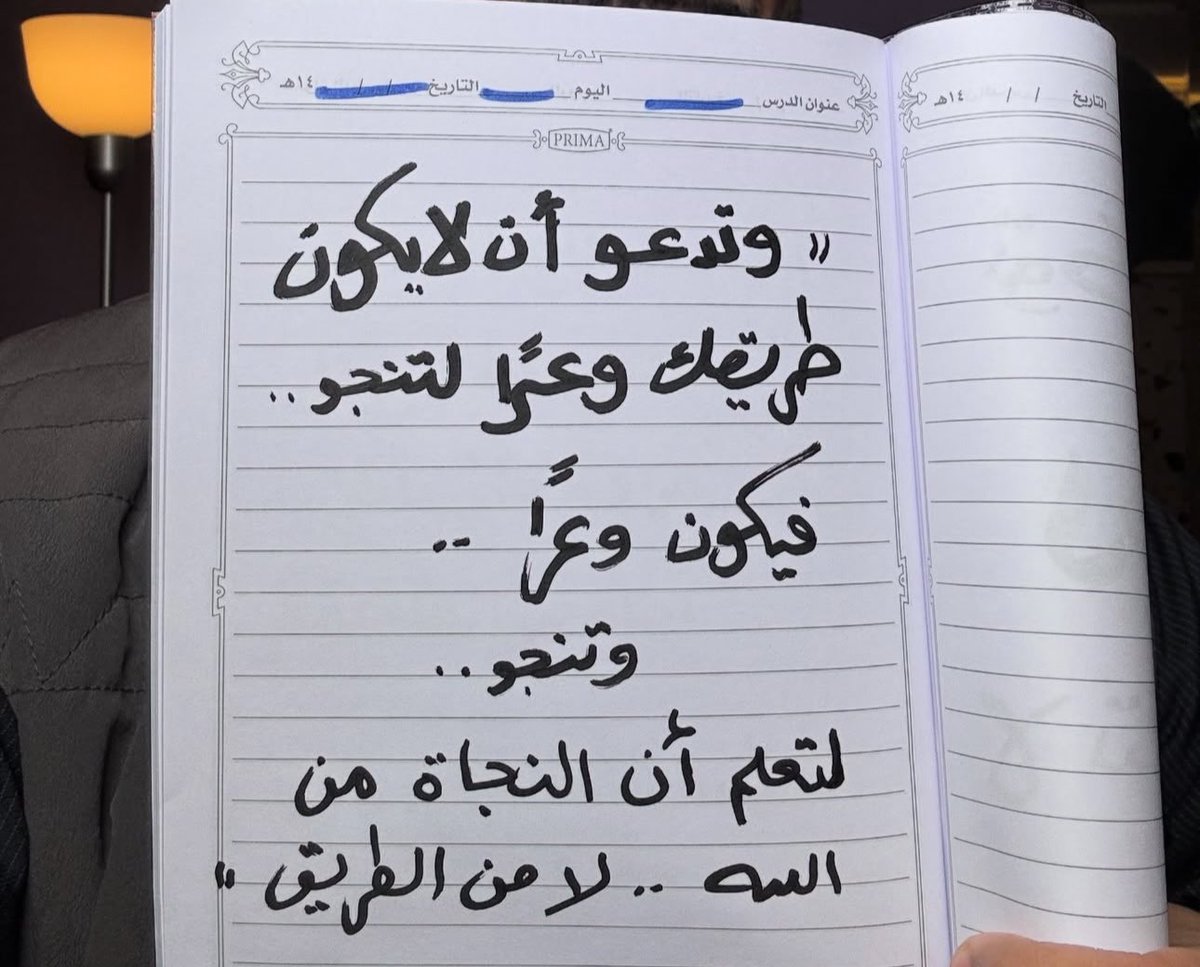 عنوان الدرس اليوم التاريخ / / ١٤هـ
التاريخ / / ١٤هـ
PRIMA
" وتدعو أن لا يكون
طريقك وعرًا لتنجو ..
فيكون وعرًا ..
وتنجو ..
لتعلم أن النجاة من
الله .. لا من الطريق "